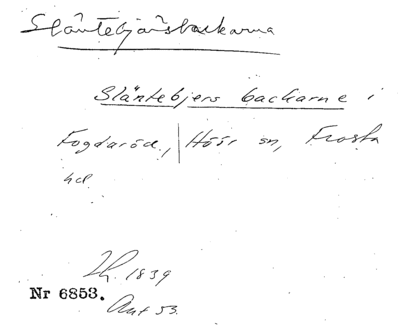 Släntebjärsbackarna
Släntebjers backarne i
Fogdaröd, | Höör sn, Frosta
hd.
1839
Nr 6853.
Ant 53.